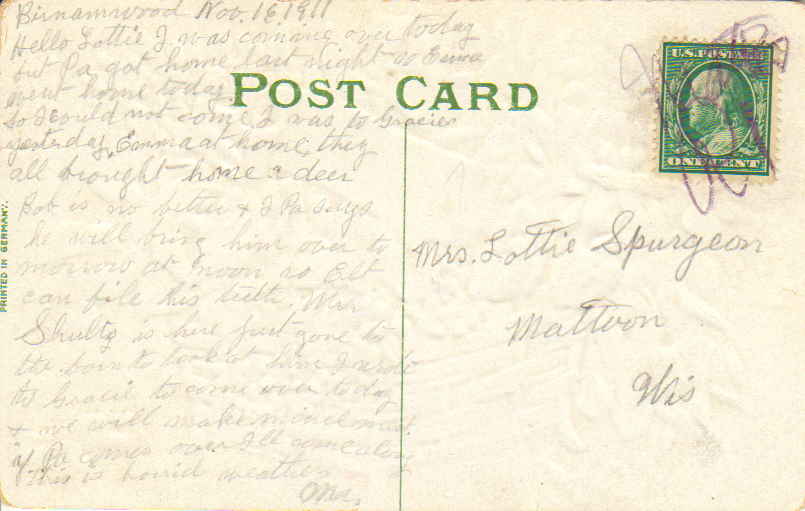 Birnamwood Nov. 16, 1911
Hello Lottie I was coming over today
but Pa got home last night so Emma
went home today
So I could not come I was to Gracies
yesterday, Emma at home, they
all brought home a deer
Bob is no better & Pa says
he will bring him over to
morrow at noon so Elt
can file his teeth. Mr.
Shultz is here just gone to
the barn to look at him I wrote
to Gracie to come over today
& we will make mincemeat
if Pa comes over I'll come along
This is horrid weather
Ma.
POST CARD
PRINTED IN GERMANY.
U.S. POSTAGE
ONE CENT
Mrs. Lottie Spurgeon
Mattoon
Wis